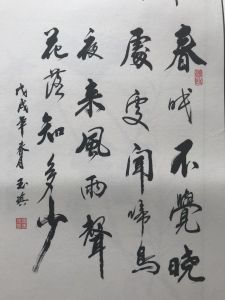 春眠不覺曉
處處聞啼鳥
夜来風雨聲
花落知多少
戊戌年春月玉